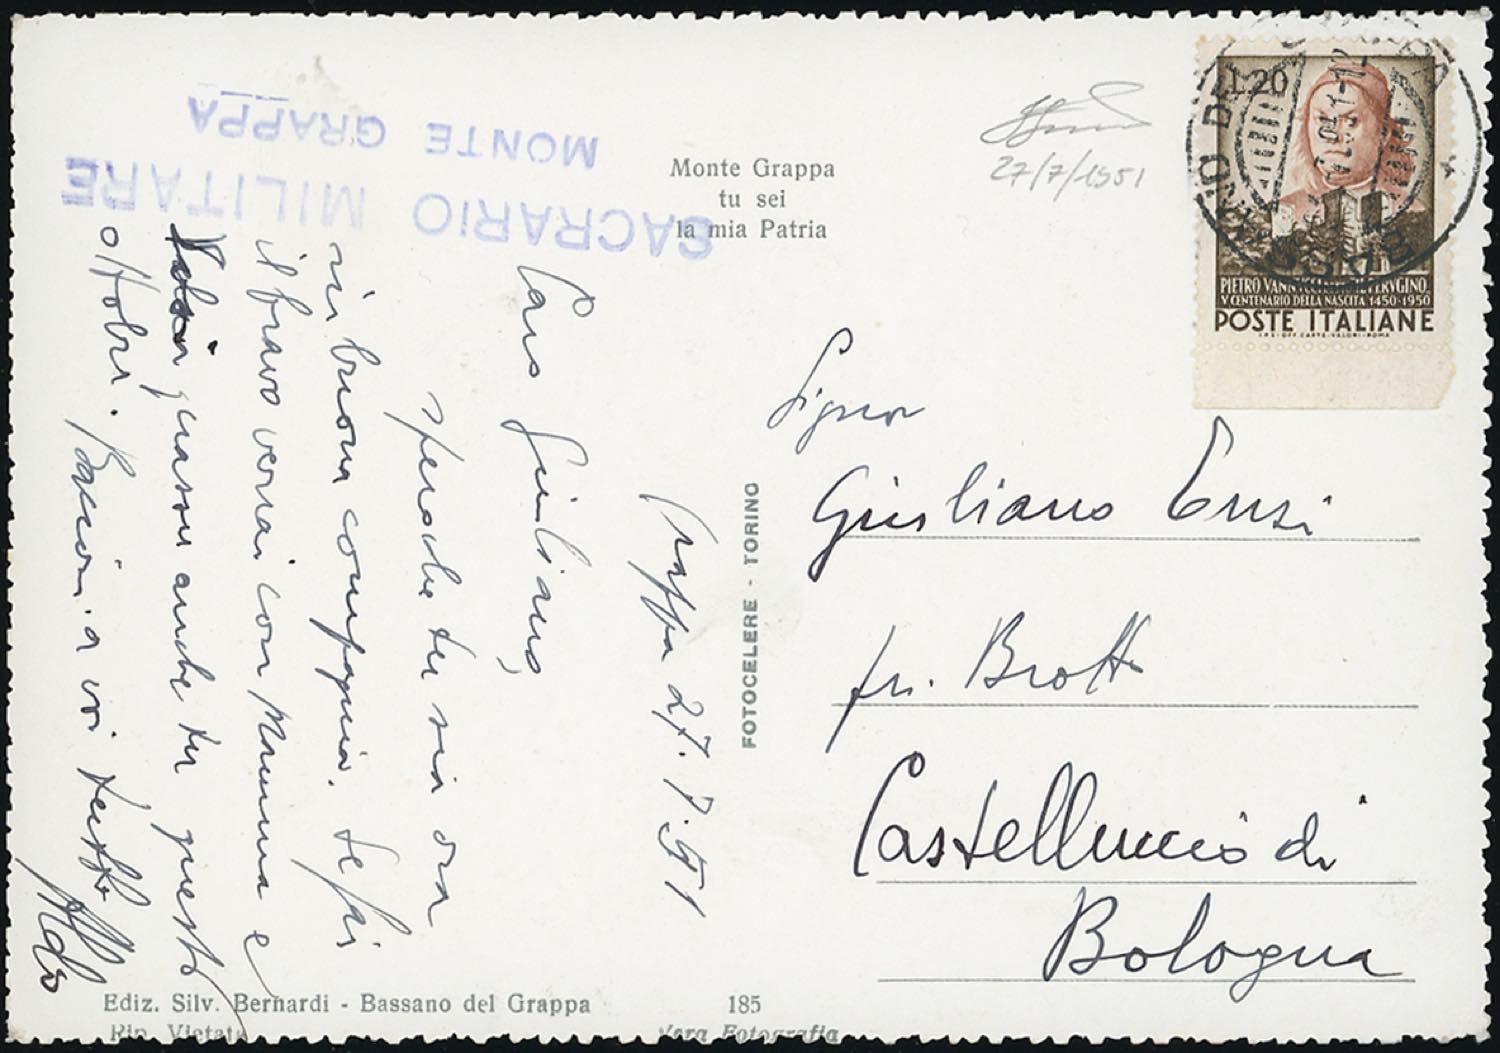 SACRARIO MILITARE
MONTE GRAPPA
Monte Grappa
tu sei
la mia Patria
27/7/1951
L.20
PIETRO VANNUCCI IL PERVGINO
V CENTENARIO DELLA NASCITA 1450-1950
POSTE ITALIANE
I.P.S. OFF. CARTE-VALORI-ROMA
BASSANO DEL GRAPPA
Grappa 27.7.951
Caro Giuliano,
spero che tu sia ora
in buona compagnia. Se fai
il bravo verrai con Mamma e
quassù anche tu questo
ottobre. Bacioni a voi tutti
Aldo
FOTOCELERE - TORINO
Signor
Giuliano
fr. Brotto
Castelluccio di
Bologna
Ediz. Silv. Bernardi - Bassano del Grappa
185
Rip. Vietata
Vera Fotografia